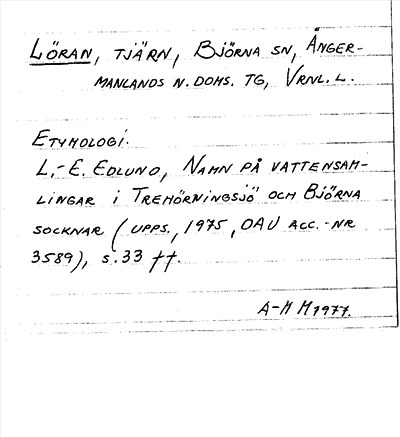 LÖRAN, TJÄRN, BJÖRNA SN, ÅNGER-
MANLANDS N. DOMS. TG, VRNL. L.
ETYMOLOGI.
L.-E. EDLUND, NAMN PÅ VATTENSAM-
LINGAR I TREHÖRNINGSJÖ OCH BJÖRNA
SOCKNAR (UPPS., 1975, OAU ACC.-NR
3589), S.33 ff.
A-M M 1977.